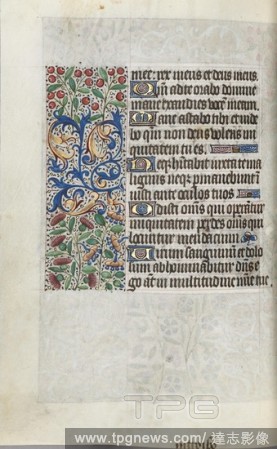 mee: rex meus et deus meus.
Qm̄ ad te orabo domine
mane exaudies vocē meam.
Mane astabo tibi et vide
bo qm̄ non deus volens ini
quitatem tu es.
Neqz habitabit iuxta te ma
lignus neqz pmanebunt in
iusti ante oculos tuos
Odisti om̄s qui operāt͛
iniquitatem perdes om̄s qui
locuntur mendacium
Virum sanguinum et dolo
sum abhominabitur dn̄s e
go aūt in multitudine mīe tue.
TPG
www.tpgnews.com/達志影像